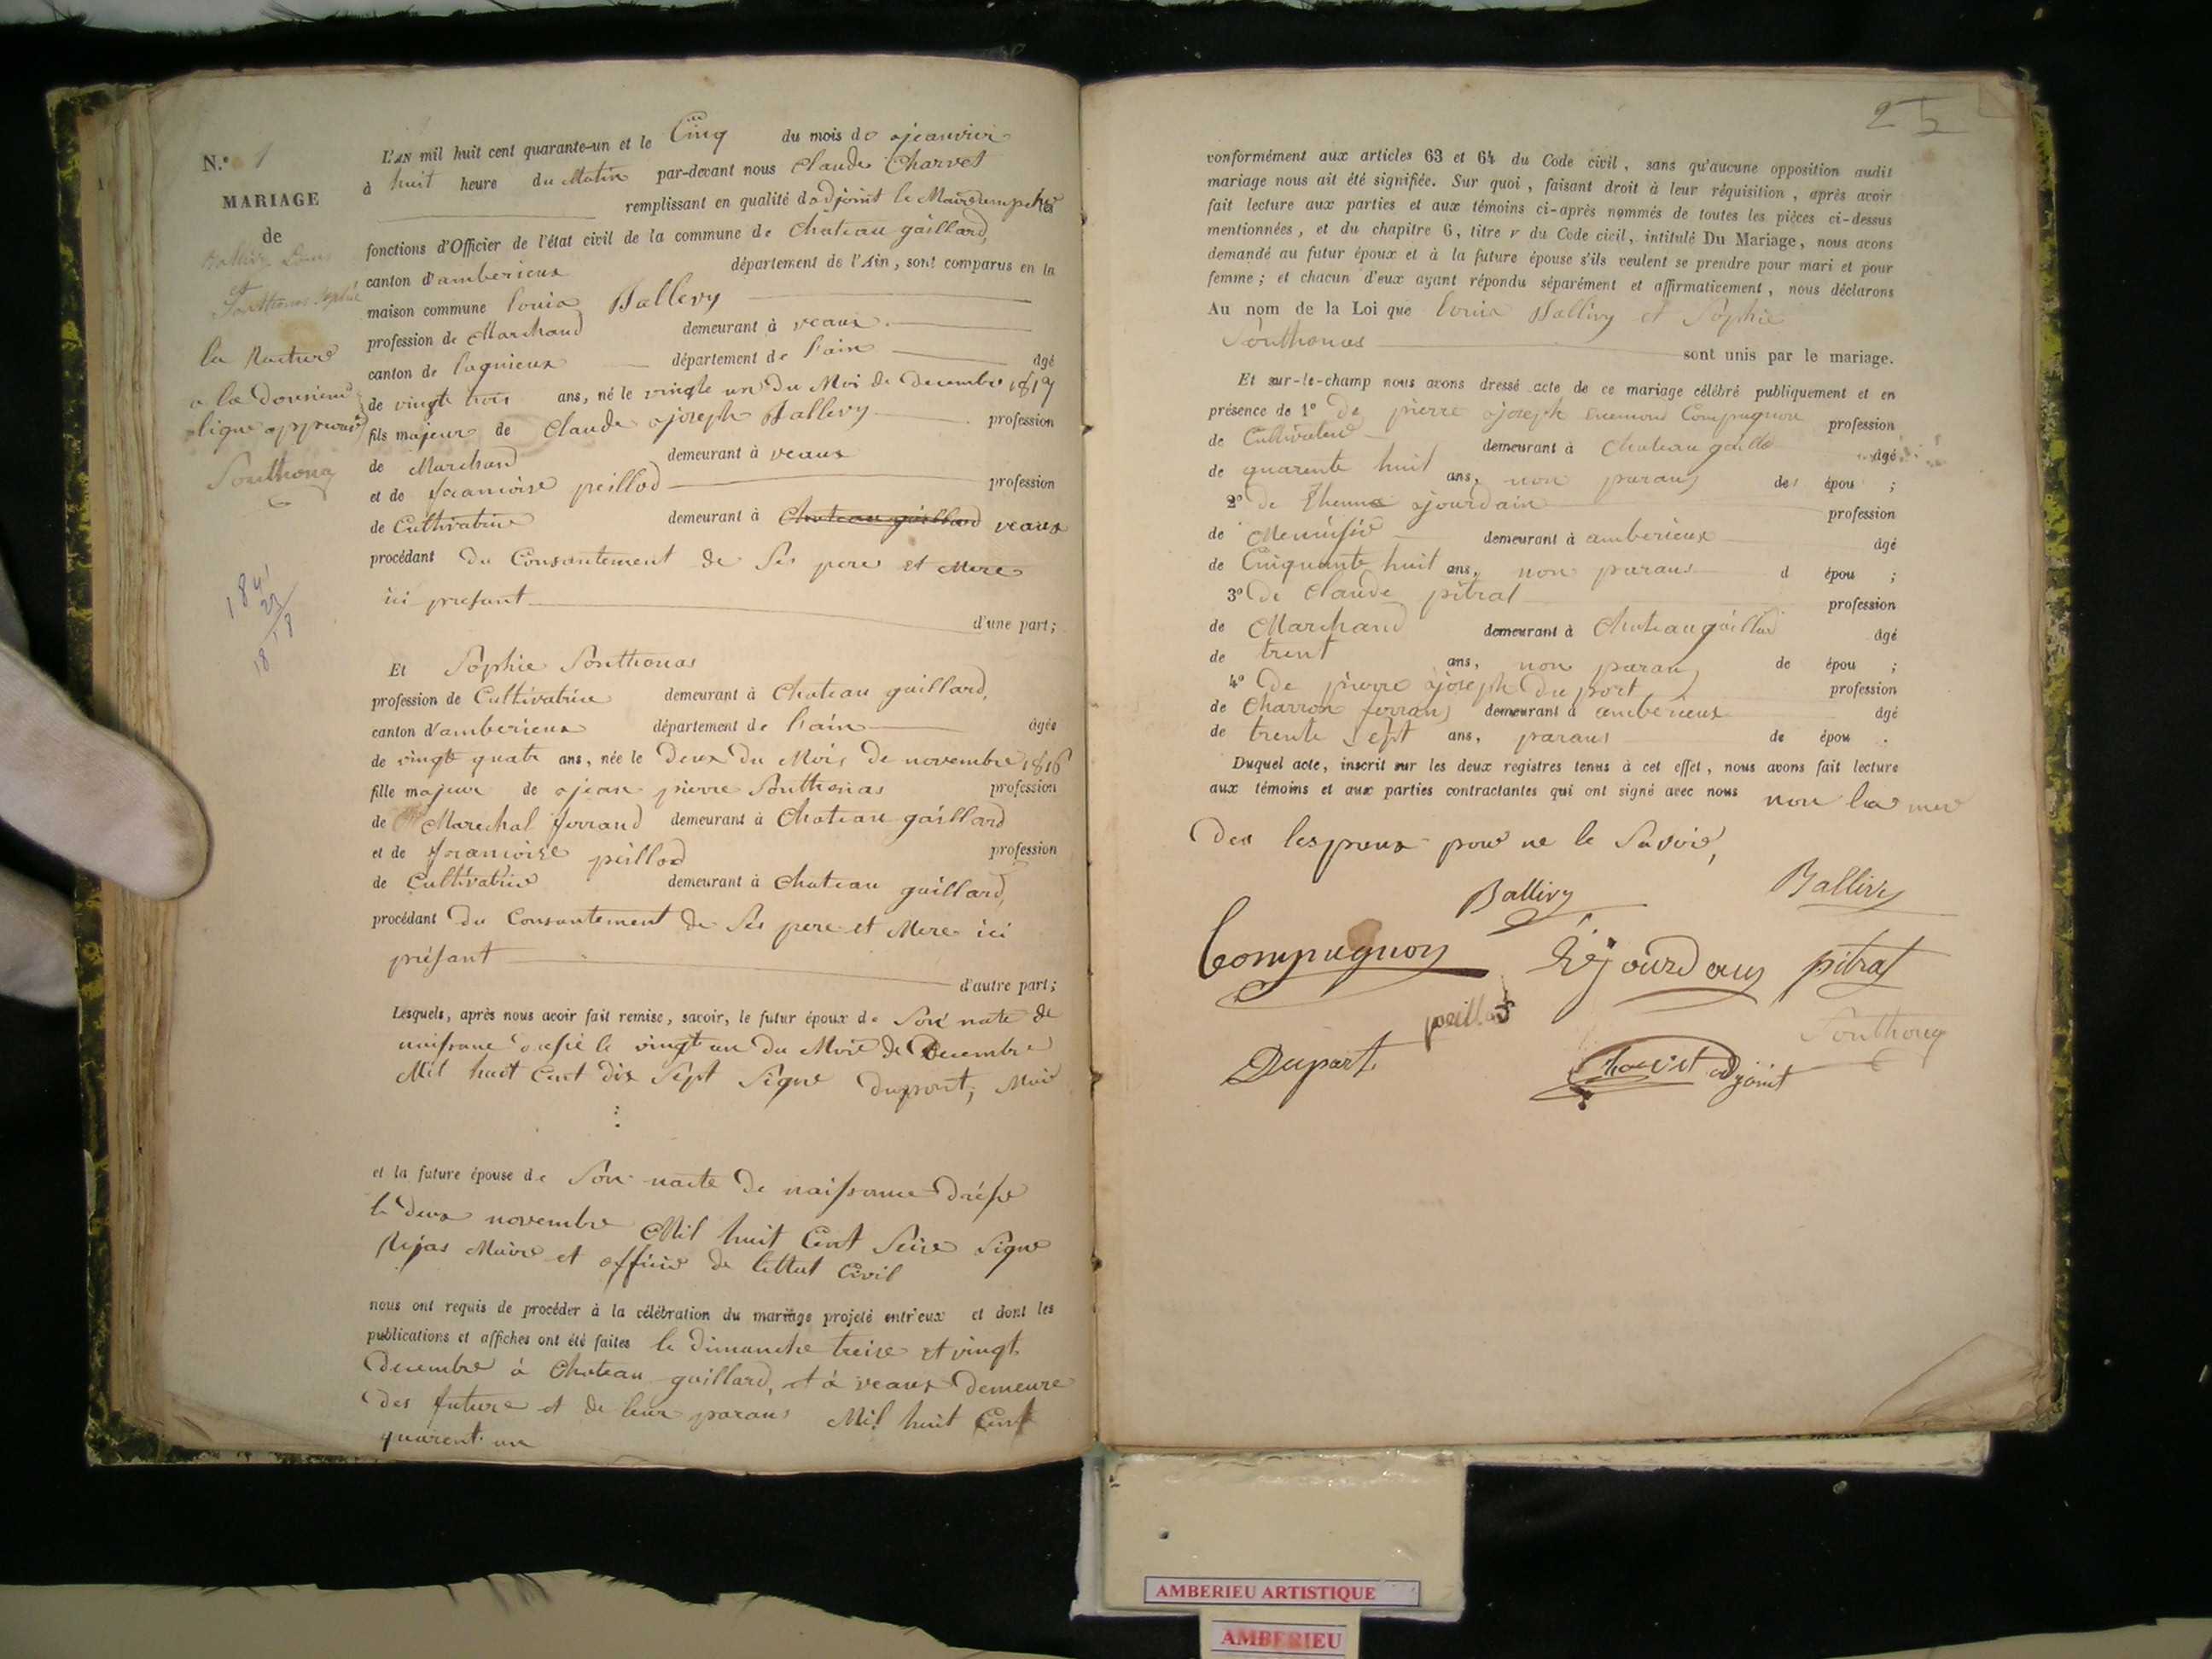 N.º 1
MARIAGE
de
Ballivy Louis
et
Ponthonas Sophie
la Rature
a la Dousieme
ligne approuvé
Ponthonas
1841
23
1818
L'AN mil huit cent quarante-un et le Cinq du mois de ajeanvier
à huit heure du Matin par-devant nous Claude Charvet
remplissant en qualité d'adjoint le Maire empeché
fonctions d'Officier de l'état civil de la commune de Chateau gaillard,
canton d'amberieux département de l'Ain, sont comparus en la
maison commune louis Ballivy
profession de Marchand demeurant à veaux
canton de lagnieux département de l'ain âgé
de vingt trois ans, né le vingte un Du Moi de Decembre 1817
fils majeur de Claude ajoseph Ballivy profession
de Marchand demeurant à veaux
et de francoise peillod profession
de Cultivatrice demeurant à Chateau gaillard veaux
procédant du Consantement de Ses pere et Mere
ici presant d'une part;
Et Sophie Ponthonas
profession de Cultivatrice demeurant à Chateau gaillard,
canton d'amberieux département de l'ain âgée
de vingt quatr ans, née le deux Du Mois De novembre 1816
fille majeur de ajean pierre Ponthonas profession
de Marechal ferrand demeurant à Chateau gaillard
et de francoise peillod profession
de Cultivatrice demeurant à Chateau gaillard,
procédant du Consantement de Ses pere et Mere ici
présant d'autre part;
Lesquels, après nous avoir fait remise, savoir, le futur époux de Son nacte de
naissance dressé le vingt un Du Mois de Decembre
Mil huit Cent dix Sept Signe dupont, Maire
et la future épouse de Son nacte De naissance Dréssé
le deux novembre Mil huit Cent Seize Signe
Réjas Maire et officier de lettat Civil
nous ont requis de procéder à la célébration du mariage projeté entr'eux et dont les
publications et affiches ont été faites le dimanche treize et vingt
Decembre à Chateau gaillard, et à veaux Demeure
Des future et de leur parans Mil huit Cent
quarent un
25
conformément aux articles 63 et 64 du Code civil, sans qu'aucune opposition audit
mariage nous ait été signifiée. Sur quoi, faisant droit à leur réquisition, après avoir
fait lecture aux parties et aux témoins ci-après nommés de toutes les pièces ci-dessus
mentionnées, et du chapitre 6, titre V du Code civil, intitulé Du Mariage, nous avons
demandé au futur époux et à la future épouse s'ils veulent se prendre pour mari et pour
femme; et chacun d'eux ayant répondu séparément et affirmativement, nous déclarons
Au nom de la Loi que louis Ballivy et Sophie
Ponthonas sont unis par le mariage.
Et sur-le-champ nous avons dressé acte de ce mariage célébré publiquement et en
présence de 1º De pierre ajoseph Compagnon profession
de Cultivateur demeurant à Chateau gaillard âgé
de quarente huit ans, non parans des épou ;
2º de Thenne ajourdain profession
de Menuisié demeurant à amberieux âgé
de Cinquante huit ans, non parans d épou ;
3º De Claude pitrat profession
de Marchand demeurant à Chateau gaillard âgé
de trent ans, non parans de épou ;
4º De pierre ajoseph Duport profession
de Charron ferrans demeurant à amberieux âgé
de trente Sept ans, parans de épou .
Duquel acte, inscrit sur les deux registres tenus à cet effet, nous avons fait lecture
aux témoins et aux parties contractantes qui ont signé avec nous non la mer
Des lespoux pour ne le Savoir,
Ballivy Ballivy
Compagnon ajourdain pitrat
peillod Ponthonas
Duport Charvet adjoint
AMBERIEU ARTISTIQUE
AMBERIEU